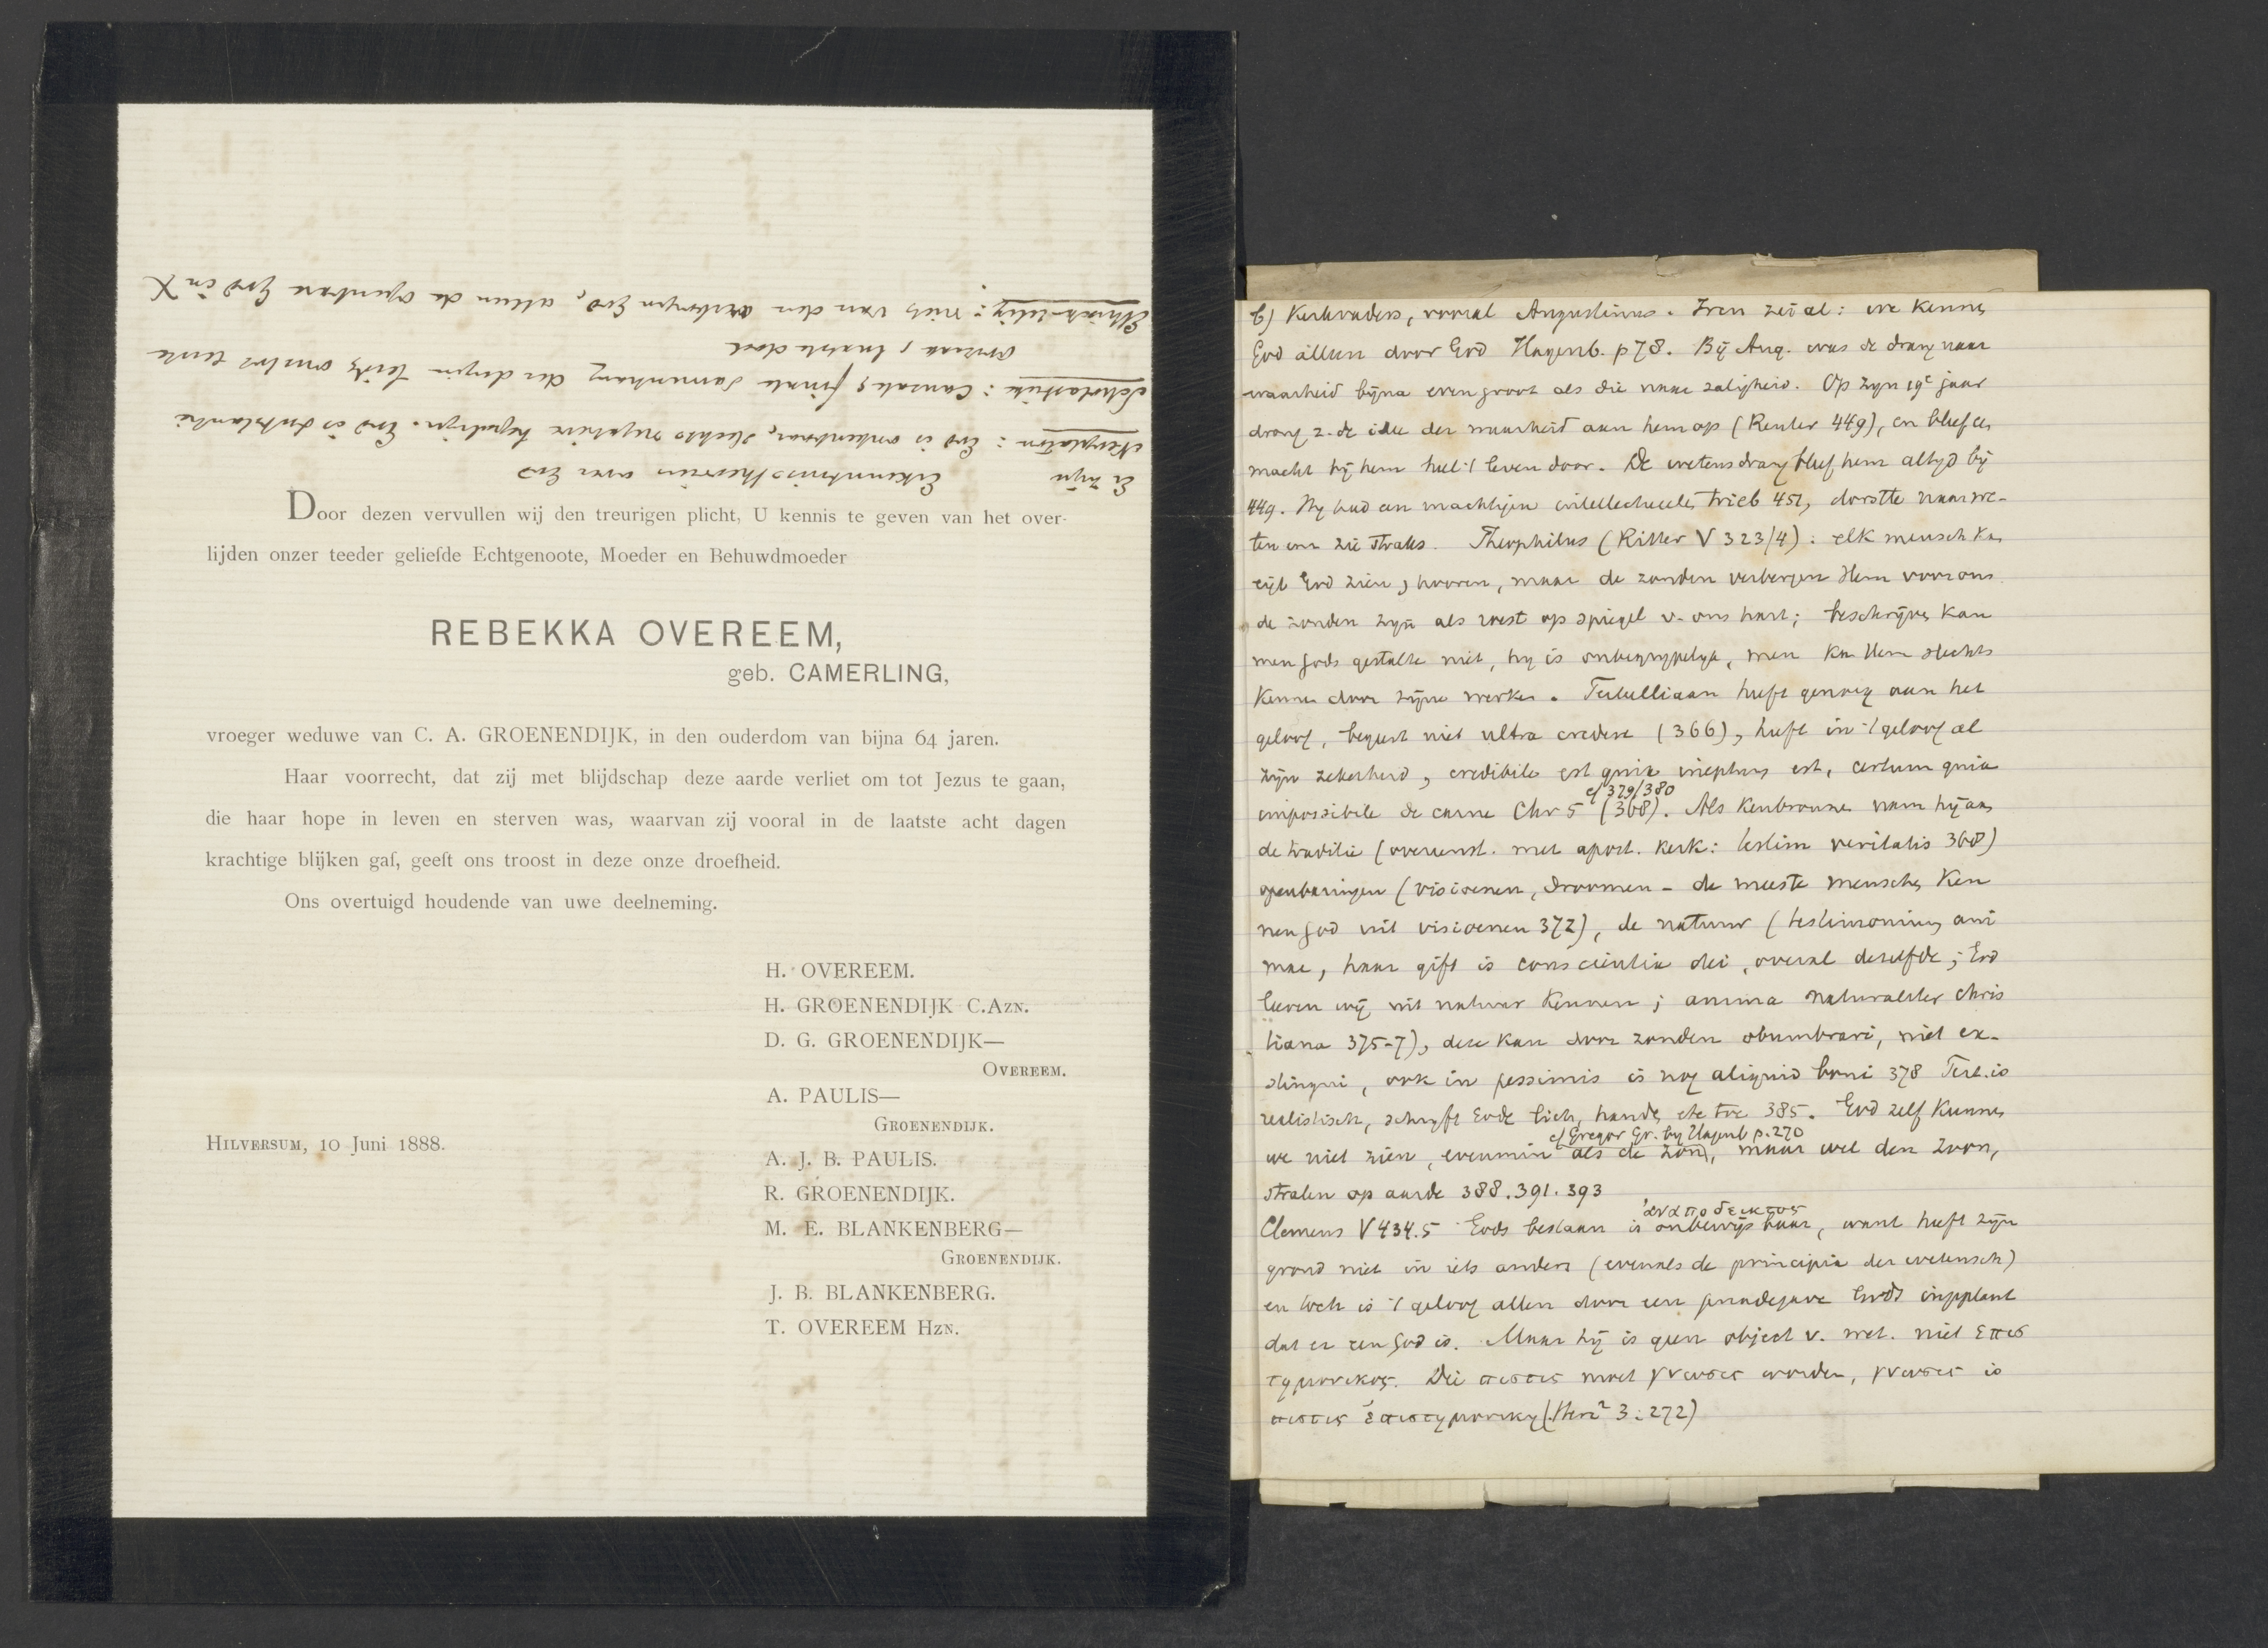 Er zijn Erkenntnistheorieën over God
Neoplaton: God is onkenbaar, slechts negatieve bepalingen. God is substantie
Scholastieke: causale, finale samenhang der dingen leidt omtrent eerste
oorzaak, laatste doel
Ethisch-relig: niets van den verborgen God, alleen de openbare God in X
Door dezen vervullen wij den treurigen plicht, U kennis te geven van het over-
lijden onzer teeder geliefde Echtgenoote, Moeder en Behuwdmoeder
REBEKKA OVEREEM,
geb. CAMERLING,
vroeger weduwe van C. A. GROENENDIJK, in den ouderdom van bijna 64 jaren.
Haar voorrecht, dat zij met blijdschap deze aarde verliet om tot Jezus te gaan,
die haar hope in leven en sterven was, waarvan zij vooral in de laatste acht dagen
krachtige blijken gaf, geeft ons troost in deze onze droefheid.
Ons overtuigd houdende van uwe deelneming.
H. OVEREEM.
H. GROENENDIJK C.Azn.
D. G. GROENENDIJK—
Overeem.
A. PAULIS—
Groenendijk.
Hilversum, 10 Juni 1888.
A. J. B. PAULIS.
R. GROENENDIJK.
M. E. BLANKENBERG—
Groenendijk.
J. B. BLANKENBERG.
T. OVEREEM Hzn.
b) Kerkvaders, vooral Augustinus. Iren zei al: we kennen
God alleen door God Hagenb. p 78. Bij Aug. was de drang naar
waarheid bijna even groot als die naar zaligheid. Op zijn 19e jaar
drong z. de idee der waarheid aan hem op (Reuter 449), en bleef en
macht bij hem heel 't leven door. De wetensdrang bleef hem altijd bij
449. Hij had een machtigen intellectueelen trieb 451, dorstte naar we-
ten enz zie straks. Theophilus (Ritter V 323/4): elk mensch kan
eigl God zien, hooren, maar de zonden verbergen Hem voor ons
de zonden zijn als roest op spiegel v. ons hart; beschrijven kan
men Gods gestalte niet, hij is onbegrijpelijk, men kan Hem slechts
kennen door zijne werken. Tertulliaan heeft genoeg aan het
geloof, begeert niet ultra credere (366), heeft in 't geloof al
zijn zekerheid, credibile est quia ineptum est, certum quia
cf 379/380
impossibile de carne Chr 5 (368). Als kenbronnen nam hij aan
de traditie (overeenst. met apost. kerk: testim veritatis 368)
openbaringen (visioenen, droomen - de meeste menschen ken
nen God uit visioenen 372), de natuur (testimonium ani
mae, haar gift is conscientia dei, overal dezelfde; God
leeren wij uit natuur kennen; anima naturaliter chris
tiana 375-7), deze kan door zonden obumbrari, niet ex-
stingui, ook in pessimis is nog aliquid boni 378 Tert. is
realistisch, schrijft Gode lich, handen etc toe 385. God zelf kunnen
cf Gregor Gr. by Hagenb p. 270
we niet zien, evenmin als de zon, maar wel den Zoon,
stralen op aarde 388. 391. 393
ἀναποδεικτος
Clemens V 434.5 Gods bestaan is onbewijsbaar, want heeft zijn
grond niet in iets anders (evenals de principia der wetensch)
en toch is 't geloof allen door een genadegave Gods ingeplant
dat er een God is. Maar hij is geen object v. wet. niet επισ
τημονικος. Die πιστις moet γνωσις worden, γνωσις is
πιστις ἐπιστημονικη (Herz² 3:272)